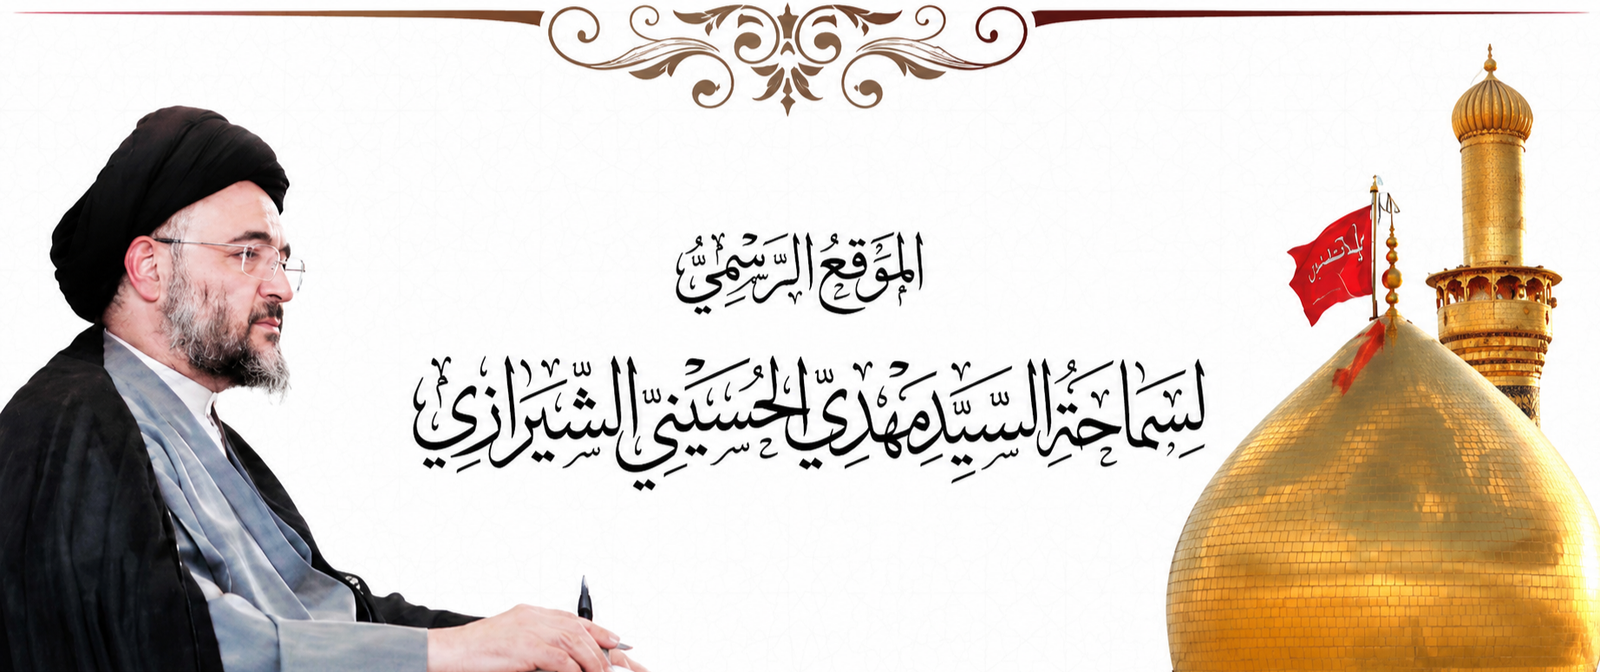 المَوْقِعُ الرَّسْمِيُّ
لِسَمَاحَةِ السَّيِّدِ مَهْدِيّ الحُسَيْنِيّ الشِّيرَازِي